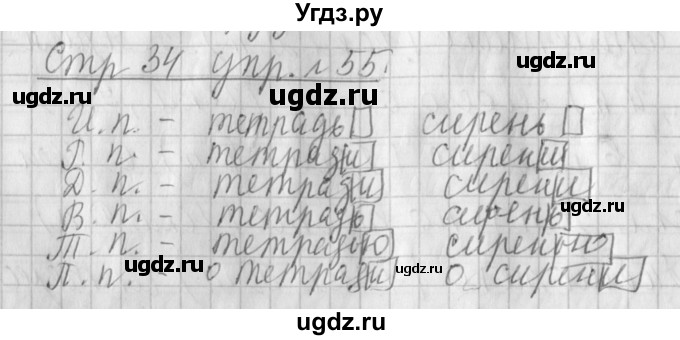 Угдз.ру
Стр 34 упр. № 55.
ugdz.ru ugdz.ru ugdz.ru
И. п. - тетрадь сирень
Р. п. - тетради сирени
ugdz.ru ugdz.ru
Д. п. - тетради сирени
В. п. - тетрадь сирень
ugdz.ru
Т. п. - тетрадью сиренью
ugdz.ru ugdz.ru
П. п. - о тетради о сирени
ugdz.ru
ugdz.ru